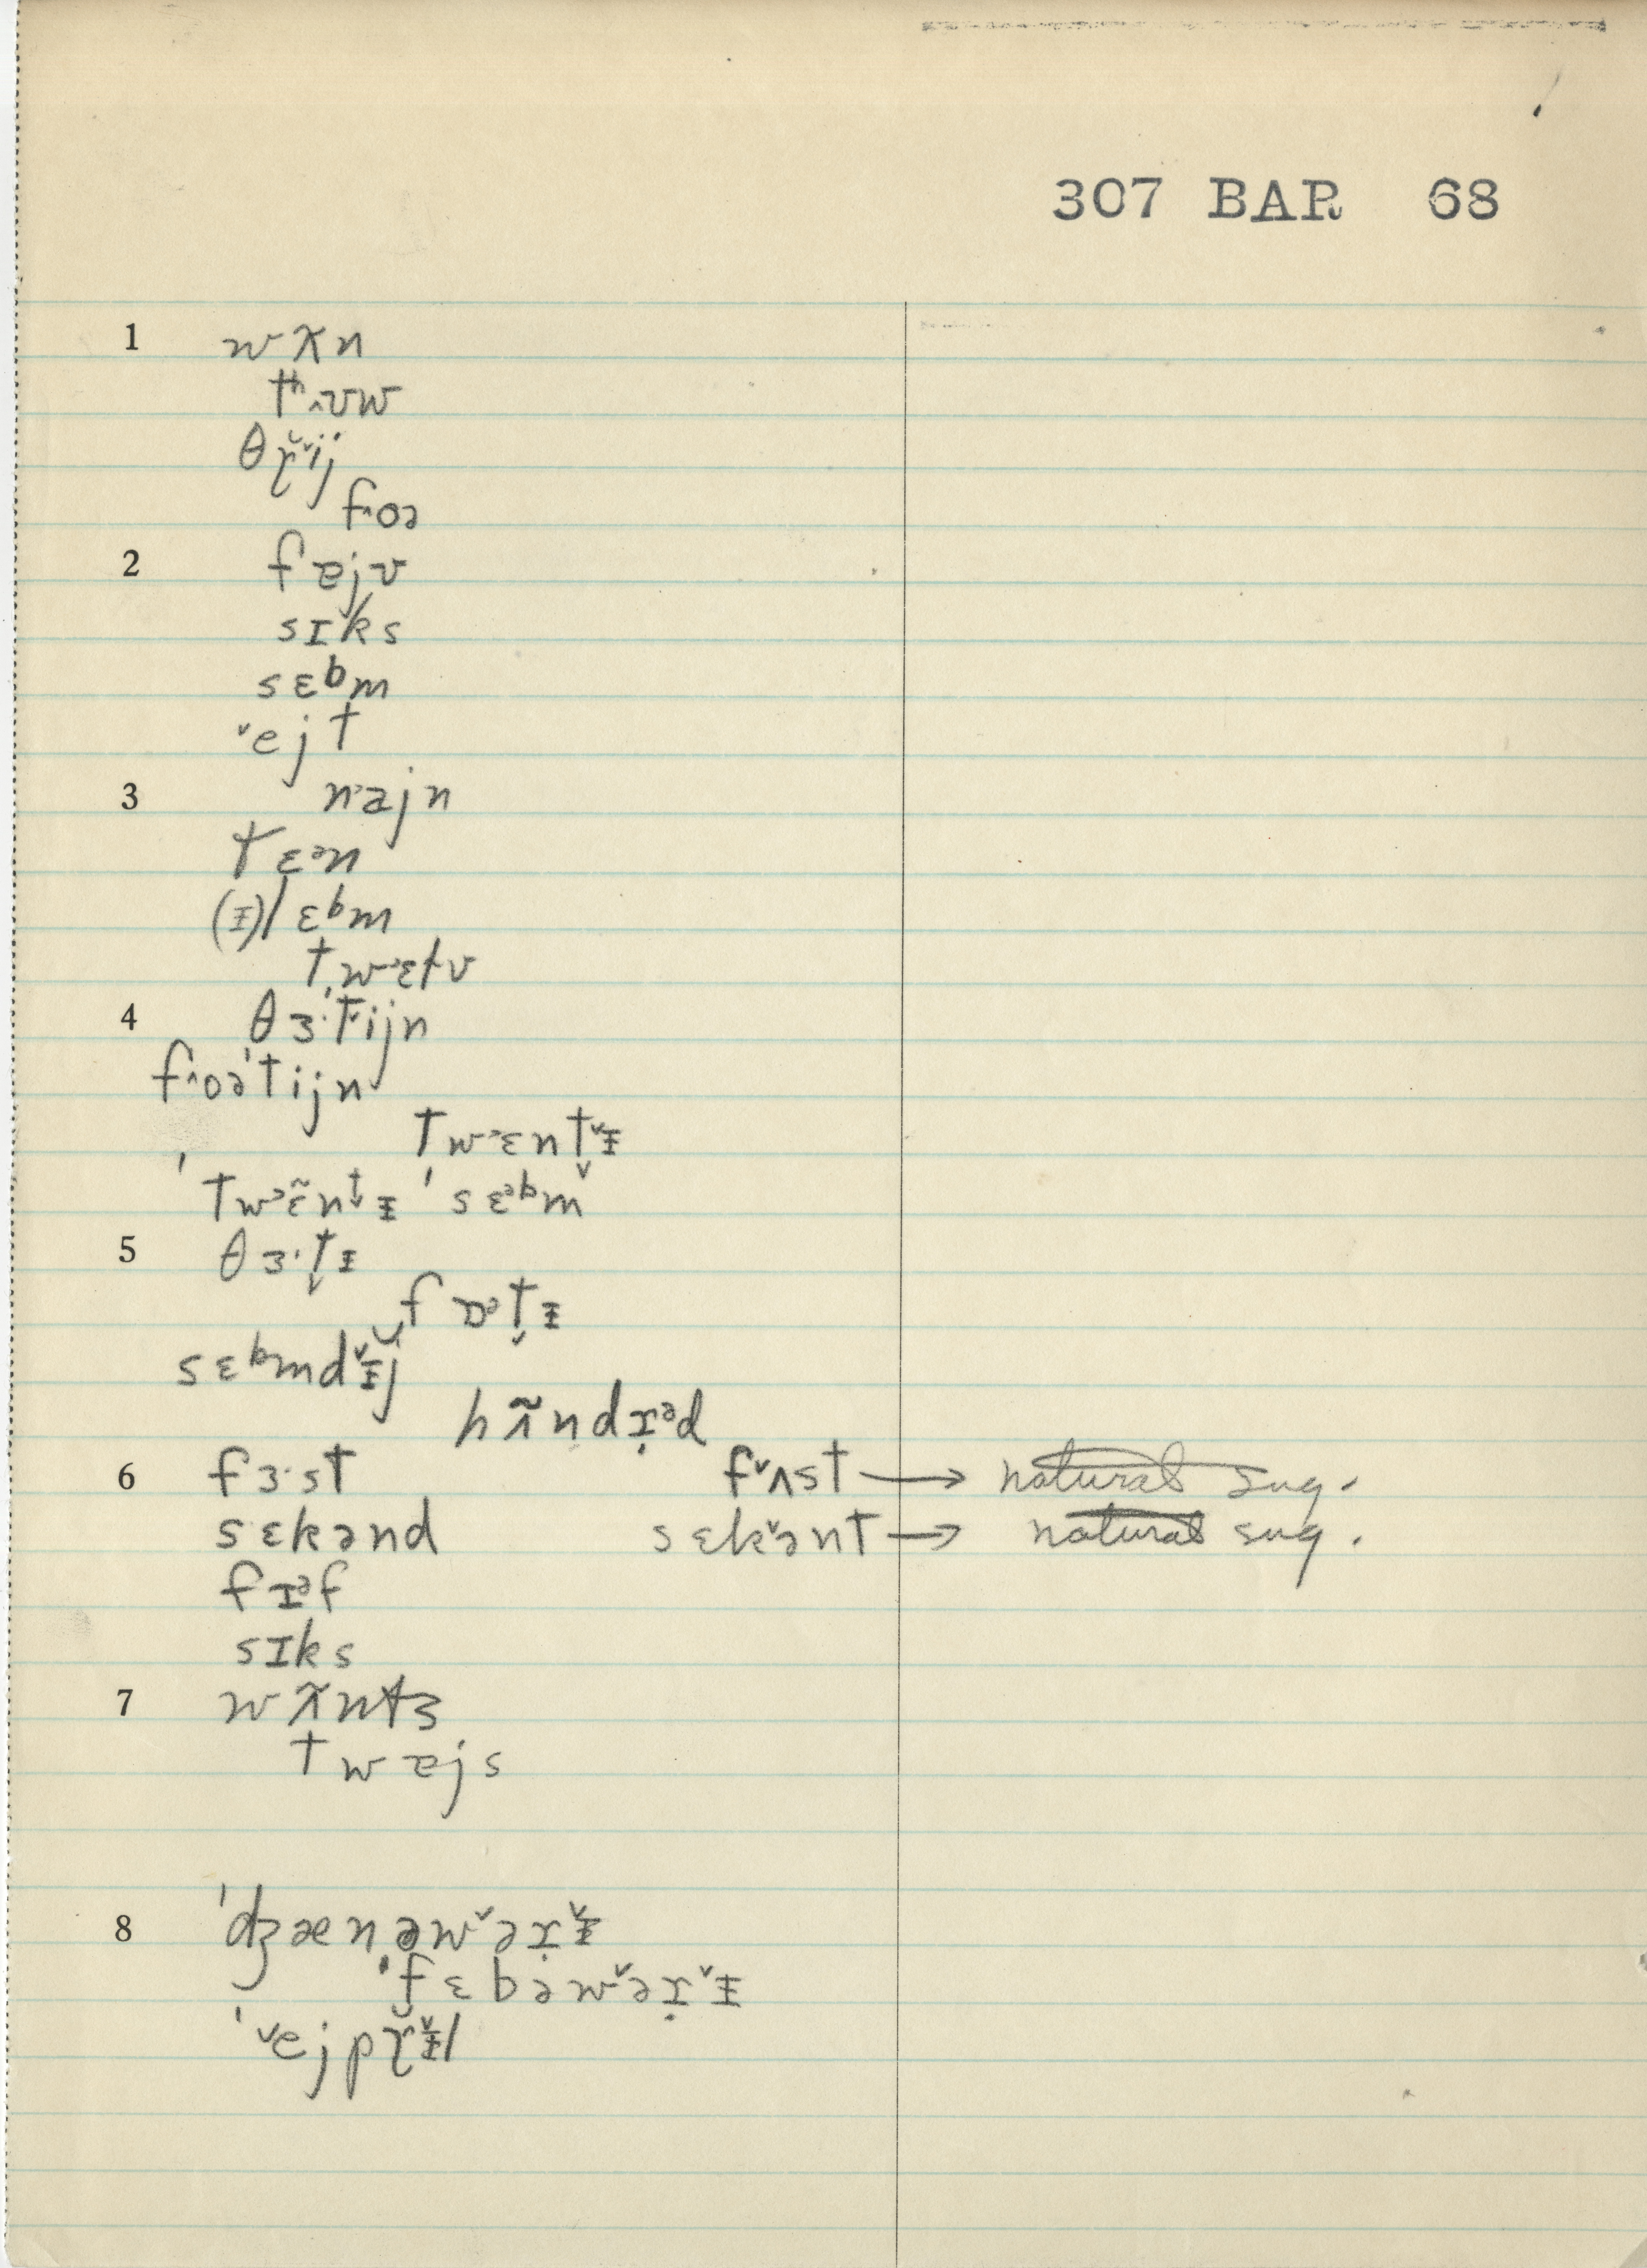 307 BAR 68
1 wʌ̃n
tʰ˰ʊw
θɽ̌ˇij
f˰oə
2 fɐjv
sɪks
sɛᵇm
ˇejt
3 n˃ajn
tɛᵊn
(ᵻ)lɛᵇm
tw˃ɛɫv
4 θɜ·ˈt̬ijn
f˰oəˈtijn
tw˃ɛnt̬ˇᵻ
ˈtw˃ɛ̃nt̬ᵻ ˈsɛᵊᵇm
5 θɜ·t̬ᵻ
fɒᵊt̬ᵻ
sɛᵇmdˇᵻ̆j
hʌ̃ndɹ̣ᵊd
6 fɜ·st fˇʌst → natural sug.
sɛkənd sɛkˇənt → natural sug.
fɪᵊf
sɪks
7 wʌ̃nts
twɐjs
8 ˈdʒænəwˇəɹ̣ˇᵻ
ˈfɛbəwˇəɹ̣ˇᵻ
ˈˇejpɽ̌ˇᵻl